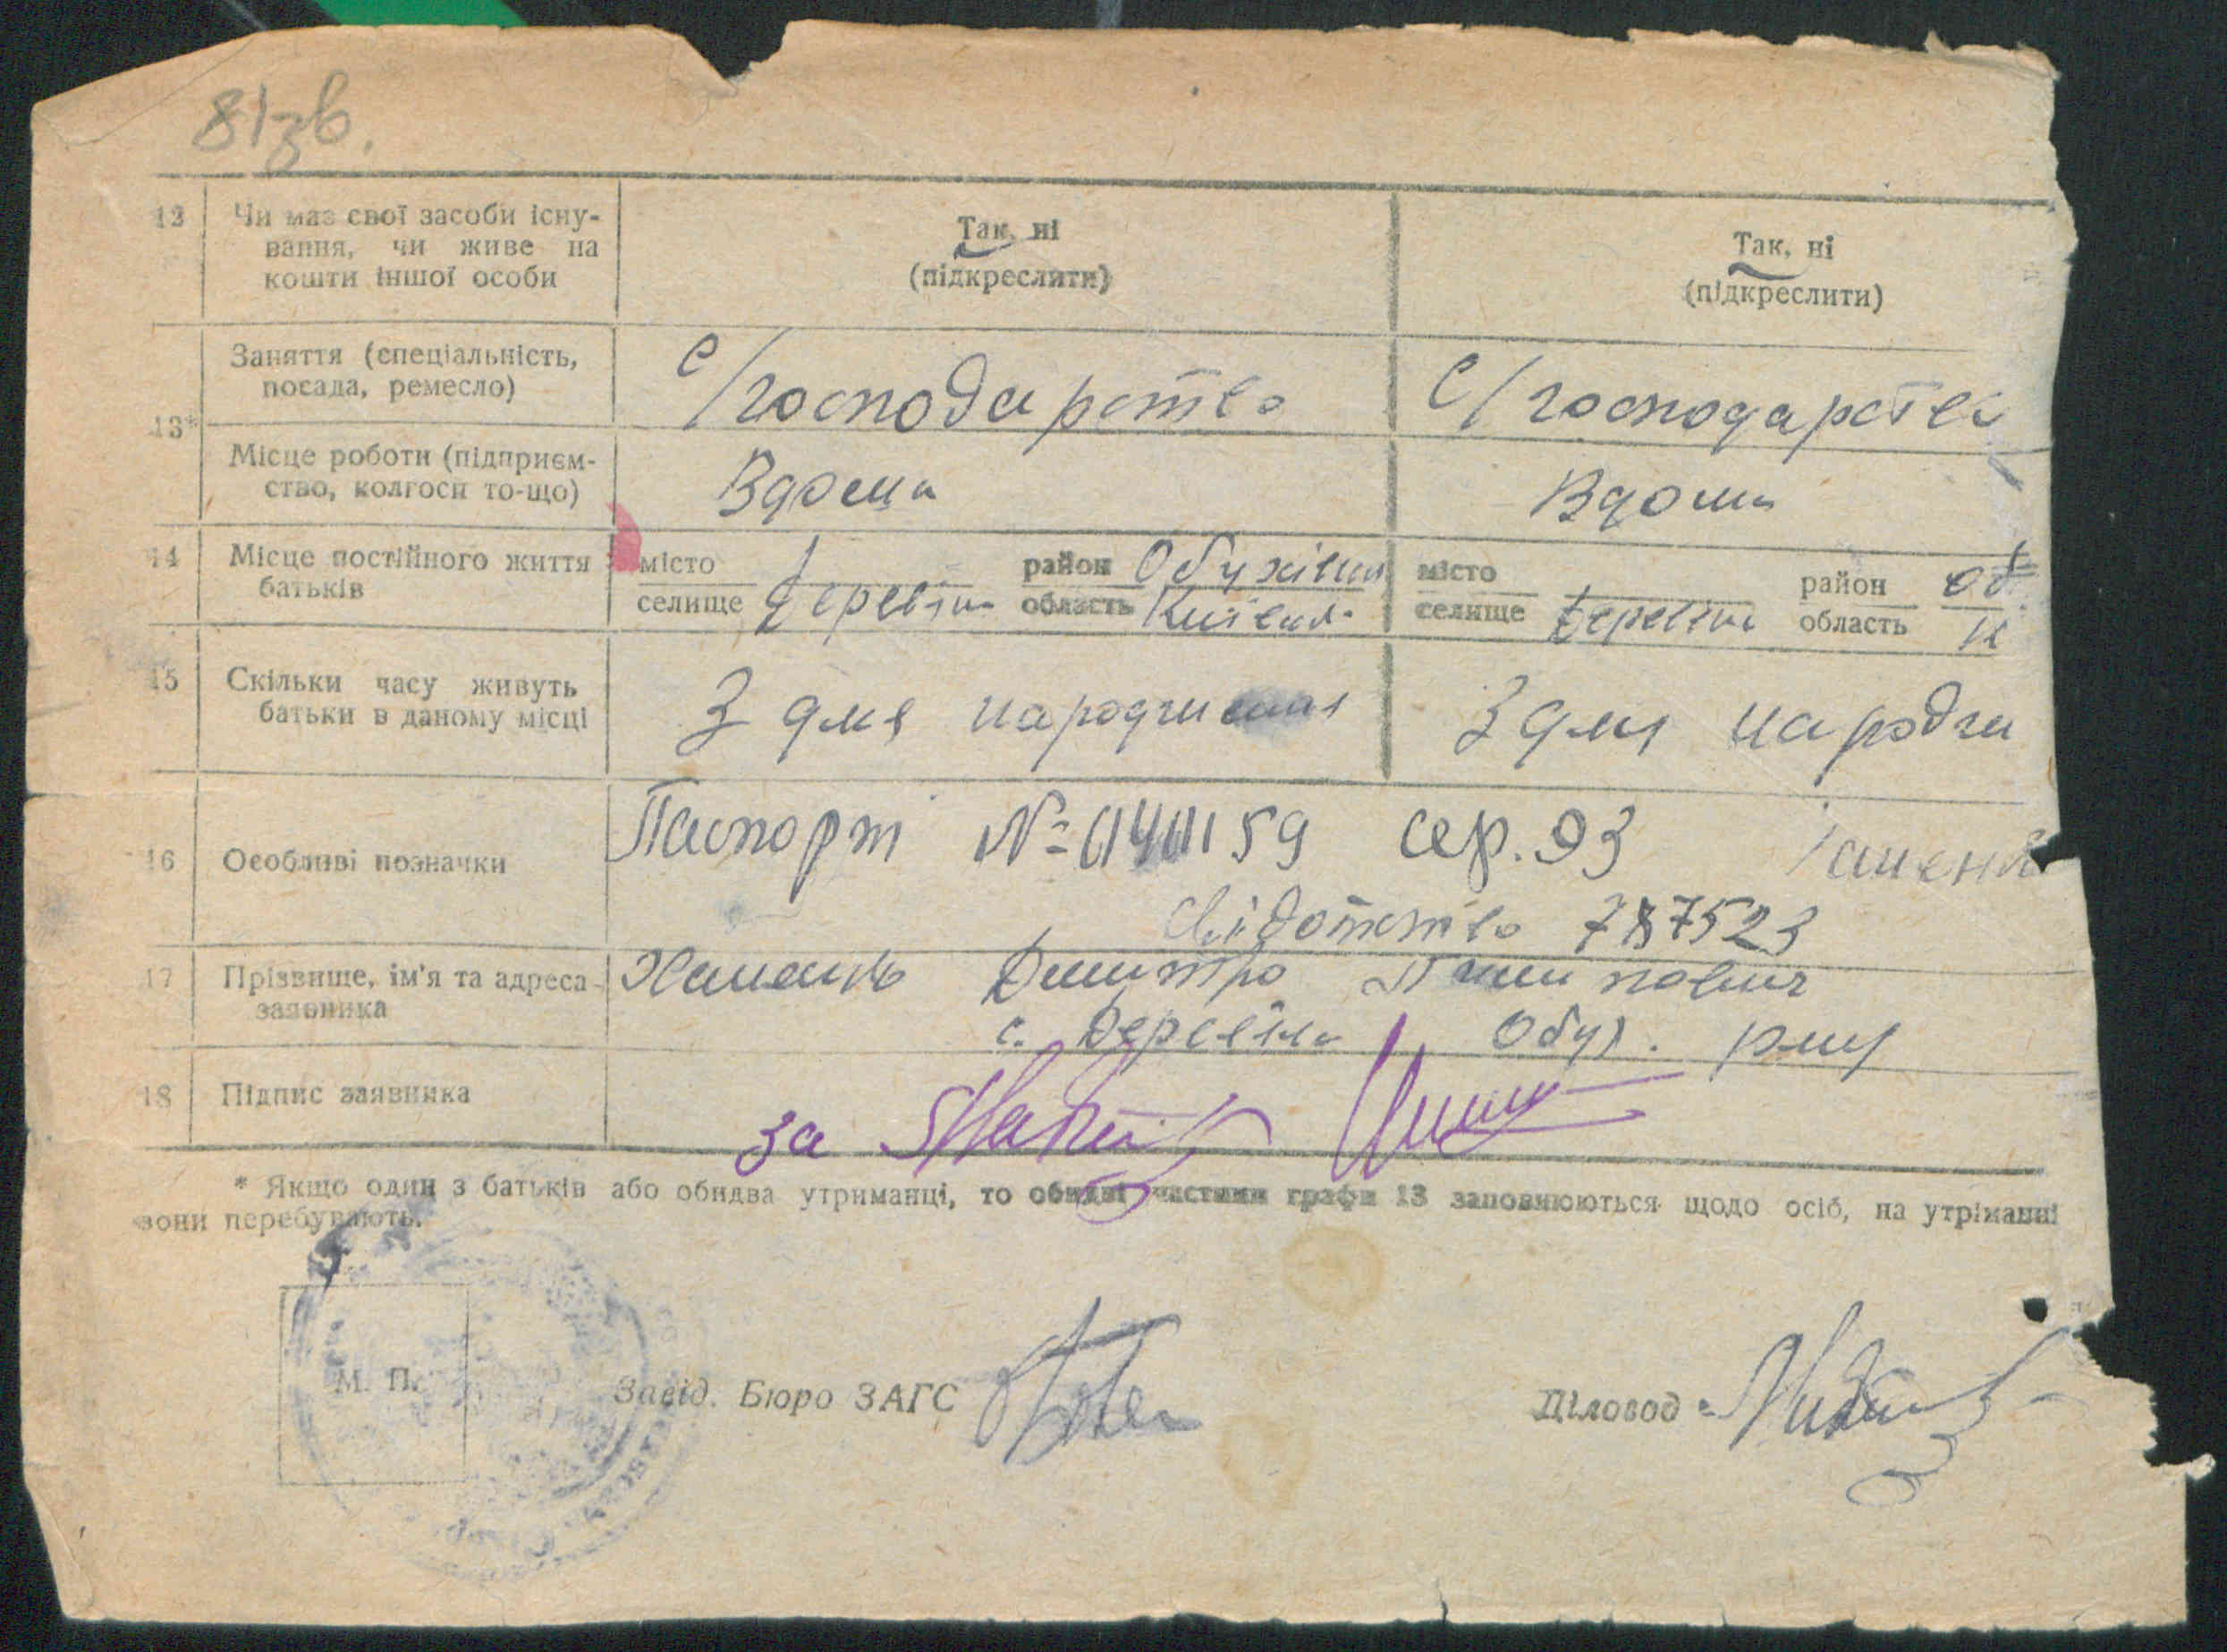 81зв.
12 Чи має свої засоби існу-
вання, чи живе на
кошти іншої особи
Так, ні
(підкреслити)
Так, ні
(підкреслити)
13*
Заняття (спеціальність,
посада, ремесло)
с/господарство
с/господарств
Місце роботи (підприєм-
ство, колгосп то-що)
Вдома
Вдома
14 Місце постійного життя
батьків
місто
селище Деревяна
район Обухівськ
область Київськ.
місто
селище Деревяна
район Об
область К
15 Скільки часу живуть
батьки в даному місці
З дня народження
З дня народже
16 Особливі позначки
Паспорт № сер. 93
свідотство 787523
17 Прізвище, ім'я та адреса
заявника
Дмитро
с. Деревяна Обух. р-ну
18 Підпис заявника
за
* Якщо один з батьків або обидва утриманці, то обидві частини графи 13 заповнюються щодо осіб, на утріманні
вони перебувають.
М. П.
Завід. Бюро ЗАГС
Діловод